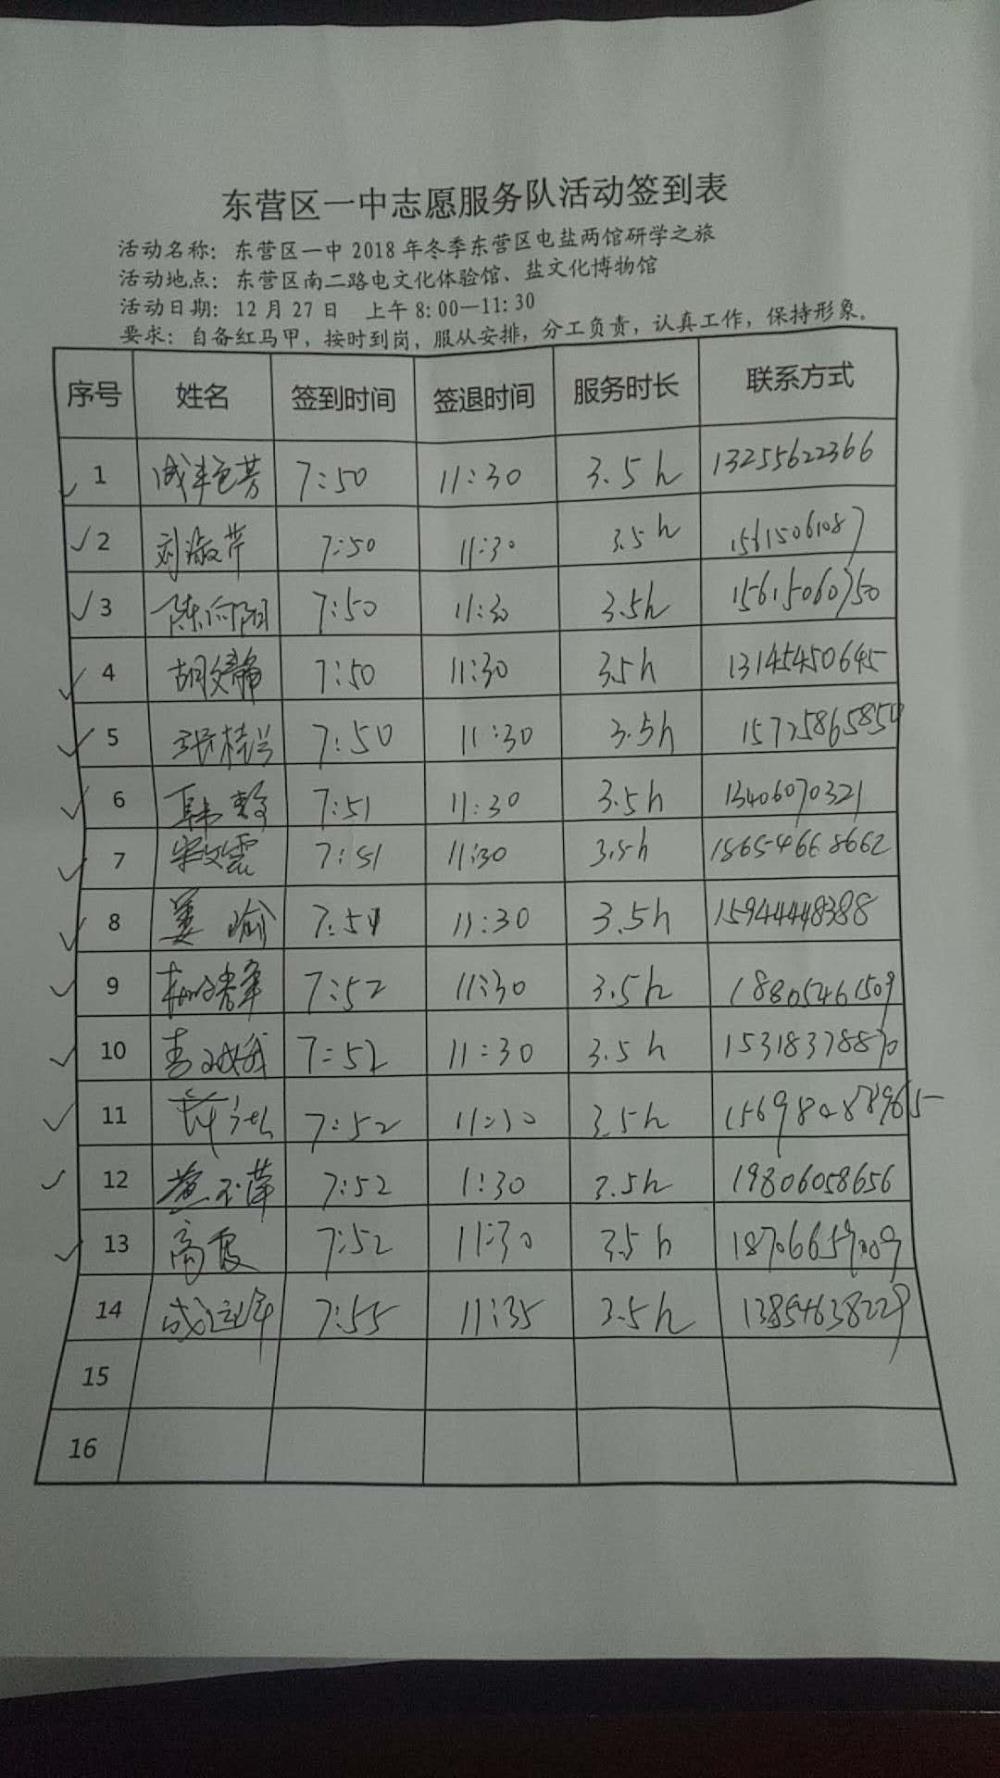 东营区一中志愿服务队活动签到表
活动名称：东营区一中 2018 年冬季东营区电盐两馆研学之旅
活动地点：东营区南二路电文化体验馆、盐文化博物馆
活动日期：12 月 27 日 上午 8:00—11:30
要求：自备红马甲，按时到岗，服从安排，分工负责，认真工作，保持形象。
序号 姓名 签到时间 签退时间 服务时长 联系方式
1 7:50 11:30 3.5h 13255622366
2 刘淑芹 7:50 11:30 3.5h 15615061087
3 陈向阳 7:50 11:30 3.5h 15615060750
4 胡文静 7:50 11:30 3.5h 13145450645
5 张桂兰 7:50 11:30 3.5h
6 韩 7:51 11:30 3.5h 13406070321
7 宋文霞 7:51 11:30 3.5h 18654668662
8 姜瑜 7:51 11:30 3.5h 15944448388
9 7:52 11:30 3.5h 18805461509
10 7:52 11:30 3.5h 15318378870
11 7:52 11:30 3.5h
12 7:52 1:30 3.5h 19806058656
13 高霞 7:52 11:30 3.5h
14 7:55 11:35 3.5h 13854638229
15
16